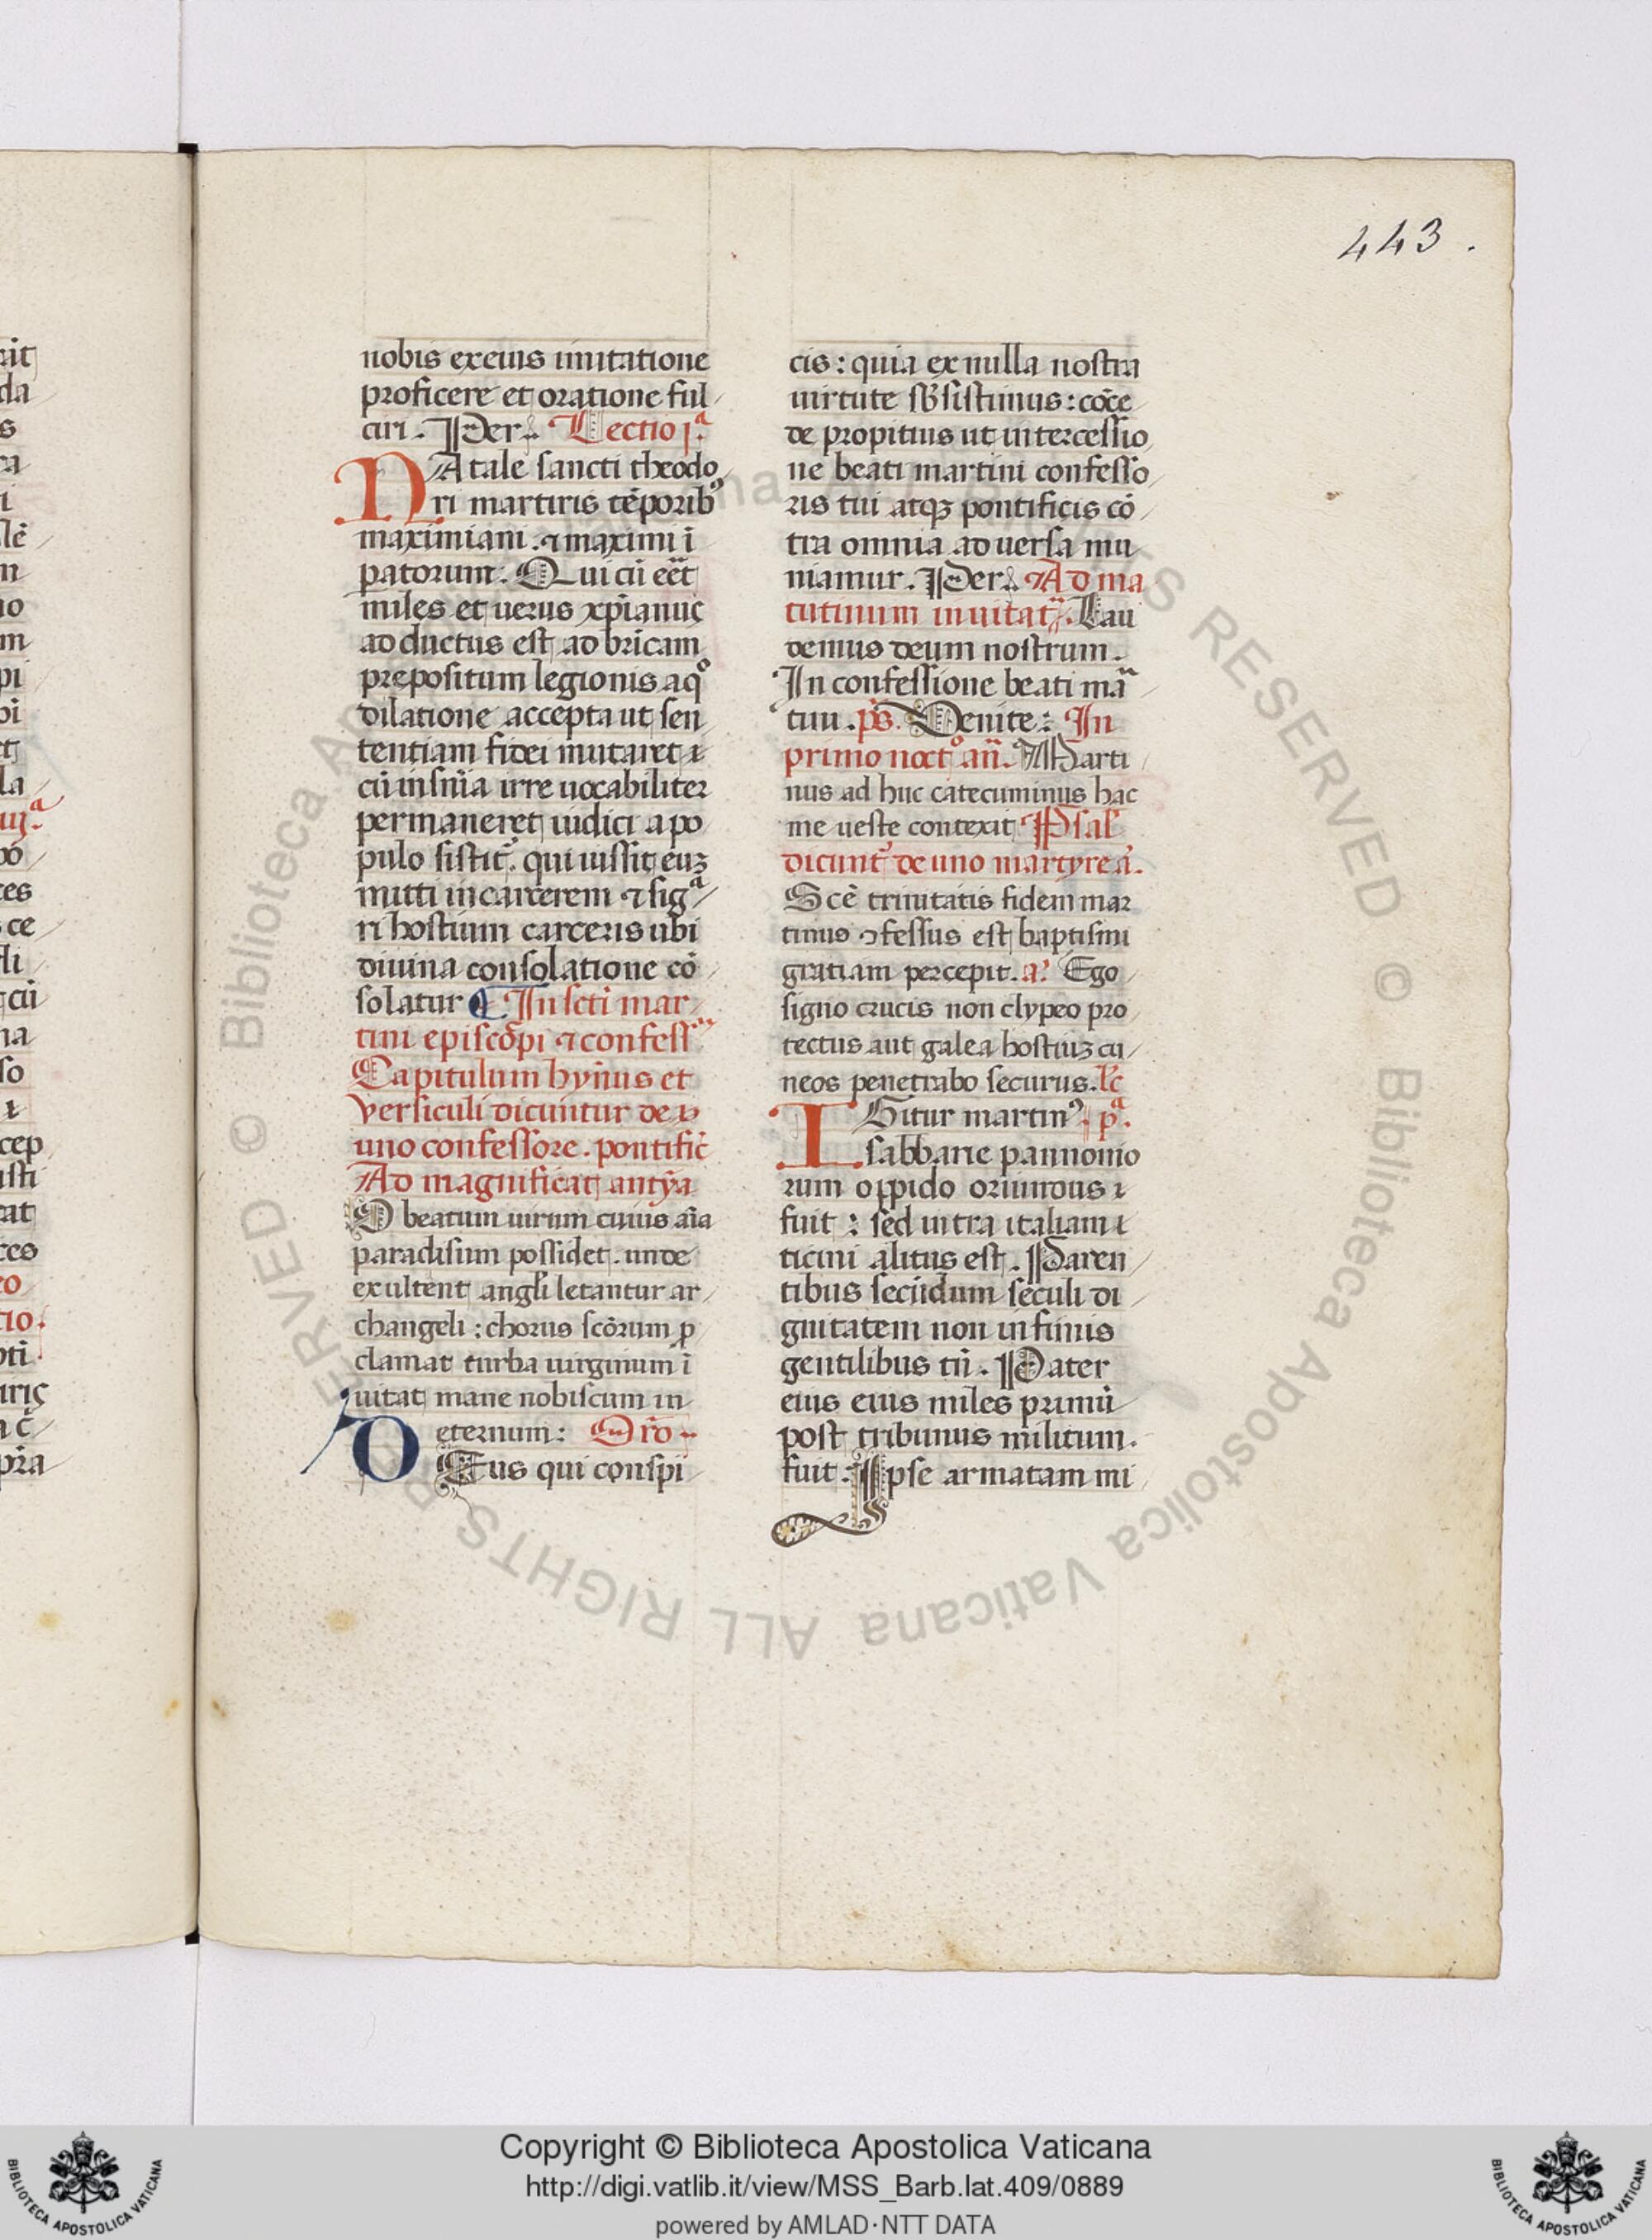 443.
nobis ex eius imitatione
proficere et oratione ful
ciri. Per. Lectio j.ª
NAtale sancti theodo
ri martiris tēporibꝰ
maximiani. ⁊ maximi ī
patorum: Qui cū eēt
miles et uerus xp̄ianus
ad ductus est ad bricam
prepositum legionis a qͦ
dilatione accepta ut sen
tentiam fidei mutaret
cū in sn̄ia irre uocabiliter
permaneret iudici a po
pulo sistit̄. qui iussit euꝫ
mitti in carcerem ⁊ sigª
ri hostium carceris ubi
diuina consolatione cō
solatur ¶ In scti mar
tini episcōpi ⁊ confess
Capitulum hymus et
versiculi dicuntur de
uno confessore. pontific̄
Ad magnificat antyͣa
O beatum uirum cuius aīa
paradisum possidet. unde
exultent angl̄i letantur ar
changeli: chorus scōrum ꝓ
clamat turba uirginum ī
uitat mane nobiscum in
eternum: Or̄o
DEus qui conspi
cis: quia ex nulla nostra
uirtute sb̄sistimus: cōce
de propitius ut intercessio
ne beati martini confesso
ris tui atqꝫ pontificis cō
tra omnia aduersa mu
niamur. Per. Ad ma
tutinum inuitat. Lau
demus deum nostrum.
In confessione beati ma
tini. ps̄. Venite: In
primo noctͦ an̄. Marti
nus ad huc catecuminus hac
me ueste contexit Psal
dicunt̄ de uno martyre a.
Scē trinitatis fidem mar
tinus ꝯfessus est baptismi
gratiam percepit. a. Ego
signo crucis non clypeo pro
tectus aut galea hostiuꝫ cu
neos penetrabo securus. lc̄
IGitur martinꝰ. pª.
sabbarie pannonio
rum oppido oriundus
fuit: sed intra italiam
ticini alitus est. Paren
tibus secūdum seculi di
gnitatem non infimis
gentilibus tn̄. Pater
eius eius miles primū
post tribunus militum.
fuit. Ipse armatam mi
Copyright © Biblioteca Apostolica Vaticana
http://digi.vatlib.it/view/MSS_Barb.lat.409/0889
powered by AMLAD·NTT DATA
© Biblioteca Apostolica Vaticana ALL RIGHTS RESERVED
BIBLIOTECA APOSTOLICA VATICANA
BIBLIOTECA APOSTOLICA VATICANA